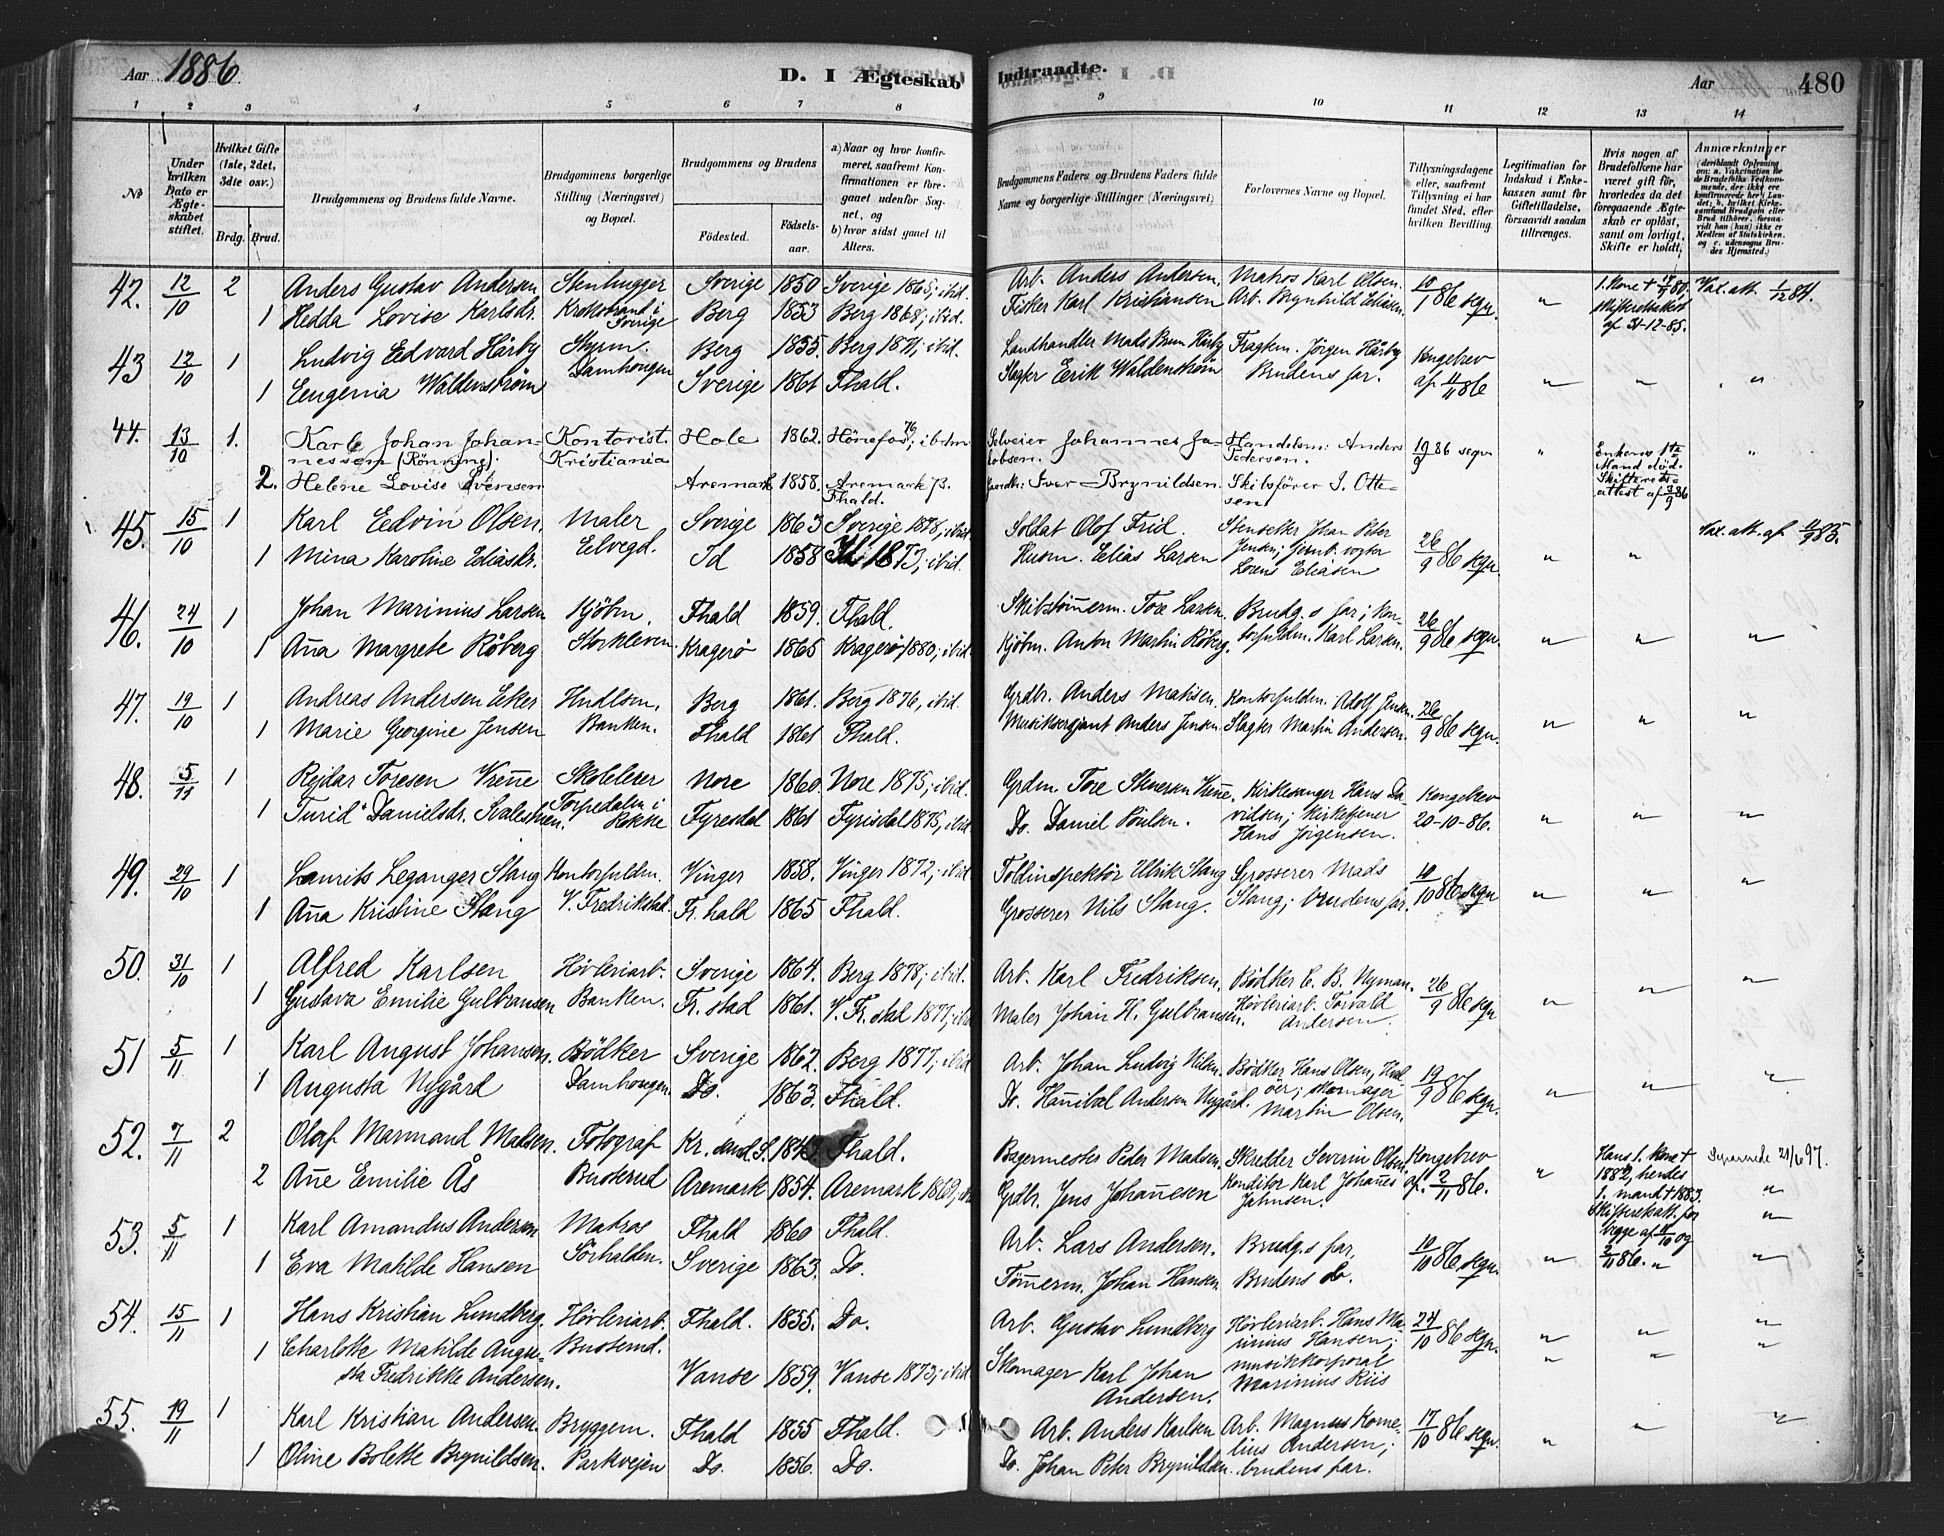 Aar 1886.
D. I Ægteskab
Indtraadte.
Aar
480
1 2 3 4 5 6 7 8 9 10 11 12 13 14
№
Under hvilken Dato er Ægteskabet stiftet.
Hvilket Gifte (1ste, 2det, 3dte osv.)
Brdg. Brud.
Brudgommens og Brudens fulde Navne.
Brudgommens borgerlige Stilling (Næringsvei) og Bopæl.
Brudgommens og Brudens
Fødested.
Fødselsaar.
a) Naar og hvor konfirmeret, saafremt Konfirmationen er foregaaet udenfor Sognet, og
b) hvor sidst gaaet til Alters.
Brudgommens Faders og Brudens Faders fulde Navne og borgerlige Stillinger (Næringsvei)
Forlovernes Navne og Bopæl.
Tillysningsdagene eller, saafremt Tillysning ei har fundet Sted, efter hvilken Bevilling.
Legitimation for Indskud i Enkekassen samt for Giftetilladelse, forsaavidt saadan tiltrænges.
Hvis nogen af Brudefolkene har været gift før, hvorledes da det foregaaende Ægteskab er opløst, samt om lovligt Skifte er holdt.
Anmærkninger
42. 12/10 2 Anders Gustav Andersen Stenhugger Sverige 1850 Sverige 1865; ibid. Arb. Anders Andersen, Matros Karl Olsen. 10/1 86 segn. " 1. Kone † 80. Vax. att. 1/12 84.
1 Hedda Lovise Karlsdr. Krokstrand i Sverige Berg 1853 Berg 1868; ibid. Fisker Karl Kristiansen Arb. Brynhild Eliasen. Skifteretsattest af 31-12-85.
43 12/10 1 Ludvig Edvard Hårby Styrm. Berg 1855. Berg 1871; ibid. Landhandler Mads Brun Hårby Fragtem. Jörgen Hårby Kongebrev
1 Eugenia Waldenström Damhaugen Sverige 1861 Fhald. Slagter Erik Waldenström Brudens far. af 11/11 86 " " "
44. 13/10 1. Karl Johan Johannessen (Rönning). Kontorist. Kristiania Hole 1862. Hönefos 76; ibidm Selveier Johannes Jakobsen. Handelsm: Anders Pedersen. 19/9 86 segn " Enkens 1ste Mand död. Skifteretsattest af 3/9 86 "
2. Helene Lovise Svensen Aremark 1858. Aremark 73. Fhald. Gaardbr: Iver Brynildsen. Skibsförer S. Ottesen
45. 15/10 1 Karl Edvin Olsen, Maler Sverige 1863 Sverige 1878, ibid. Soldat Olof Frid. Stensetter Johan Peter Jensen; jernb. vogter Lorens Eliasen 26/9 86 segn. " " Vax. att. af 11/9 85.
1 Mina Karoline Eliasdr. Elvegd. Id 1858 Id 1873; ibid. Husm. Elias Larsen
46. 24/10 1 Johan Marinius Larsen Kjöbm. Fhald 1859. Fhald. Skibstömerm. Tore Larsen. Brudg.s far; Kontorfuldm. Karl Larsen. 26/9 86 segn. " " "
1 Aña Margrete Röberg Storkleven. Kragerø 1865 Kragerø 1880; ibid. Kjöbm. Anton Martin Röberg.
47. 19/10 1 Andreas Andersen Eeker Hndlsm. Berg 1861. Berg 1876, ibid. Grdbr. Anders Matisen. Kontorfuldm. Adolf Jensen. 26/9 86 segn. " " "
1 Marie Georgine Jensen Banken. Fhald 1861 Fhald. Musiksergiant Anders Jensen Slagter Martin Andersen.
48. 5/11 1 Rejdar Toresen Skolelerer Nore 1860 Nore 1875; ibid. Grdm. Tore Kirkesanger Hans Davidsen; Kirketjener Hans Jörgensen. Kongebrev 20-10-86. " " "
1 Turid Danielsdr. Torpedalen i Rokke Fyresdal 1861 Fyrisdal 1875, ibid Do. Daniel Poulsen.
49. 29/10 1 Laurits Leganger Stang Kontorfuldm. Vinger 1858. Vinger 1872; ibid Toldinspektör Ulrik Stang Grosserer Mads Stang; brudens far. 10/10 86 segn " " "
1 Aña Kristine Stang V. Fredrikstad. Fr. hald 1865 Fhald. Grosserer Nils Stang.
50. 31/10 1 Alfred Karlsen Høvleriarb. Sverige 1864. Berg 1878; ibid. Arb. Karl Fredriksen, Bødker C. B. Nyman. 26/9 86 segn " " "
1 Gustava Emilie Gulbransen Banken. Fr. stad 1861. V. Fr. stad 1877; ibid Maler Johan H. Gulbransen. Høvleriarb. Torvald Andersen.
51 5/11 1 Karl August Johansen. Bödker Sverige 1862. Berg 1877; ibid Arb. Johan Ludvig Nilsen. Bödker Hans Olsen, Hvaløer; skomager Martin Olsen. 19/9 86 segn. " " "
1 Augusta Nygård Damhaugen. Do. 1863. Fhald. Do. Hañibal Andersen Nygård.
52. 7/11 2 Olaf Marmand Madsen. Fotograf Kr. sand. S. Fhald. Bagermester Peder Madsen. Skredder Severin Olsen Kongebrev af. 2/11 86. " Hans 1. Kone † 1882, hendes 1. mand † 1883. Skifteretsatt. for begge af 11/10 og 2/11 86. Separerede 21/6 97.
2 Añe Emilie Ås Buskerud Aremark 1854. Aremark 1869; ibid Grdbr. Jens Johañesen Konditor Karl Johañes Jahnsen. "
53. 5/11 1 Karl Amandus Andersen Matros Fhald 1860 Fhald. Arb. Lars Andersen. Brudg.s far, 10/10 86 segn. " " "
1 Eva Matilde Hansen Sörhalden. Sverige 1863. Do. Tömerm. Johan Hansen Brudens do.
54. 15/11 1 Hans Kristian Lundberg. Høvleriarb. Fhald. 1855. Do. Arb. Gustav Lundberg Høvleriarb. Hans Marinius Hansen; musikkorporal Marinius Riis 24/10 86 segn. " " "
1 Charlotte Matilde Augusta Fredrikke Andersen. Vanse 1859. Vanse 1873; ibid Skomager Karl Johan Andersen. " " "
55. 19/11 1 Karl Kristian Andersen. Bryggem. Fhald 1855 Fhald. Arb. Anders Karlsen Arb. Magnus Kornelius Andersen; brudens far. 17/10 86 segn. " " "
1 Oline Bolette Brynildsen. Parkvejen Do. 1856. Do. Do. Johan Peter Brynildsen.